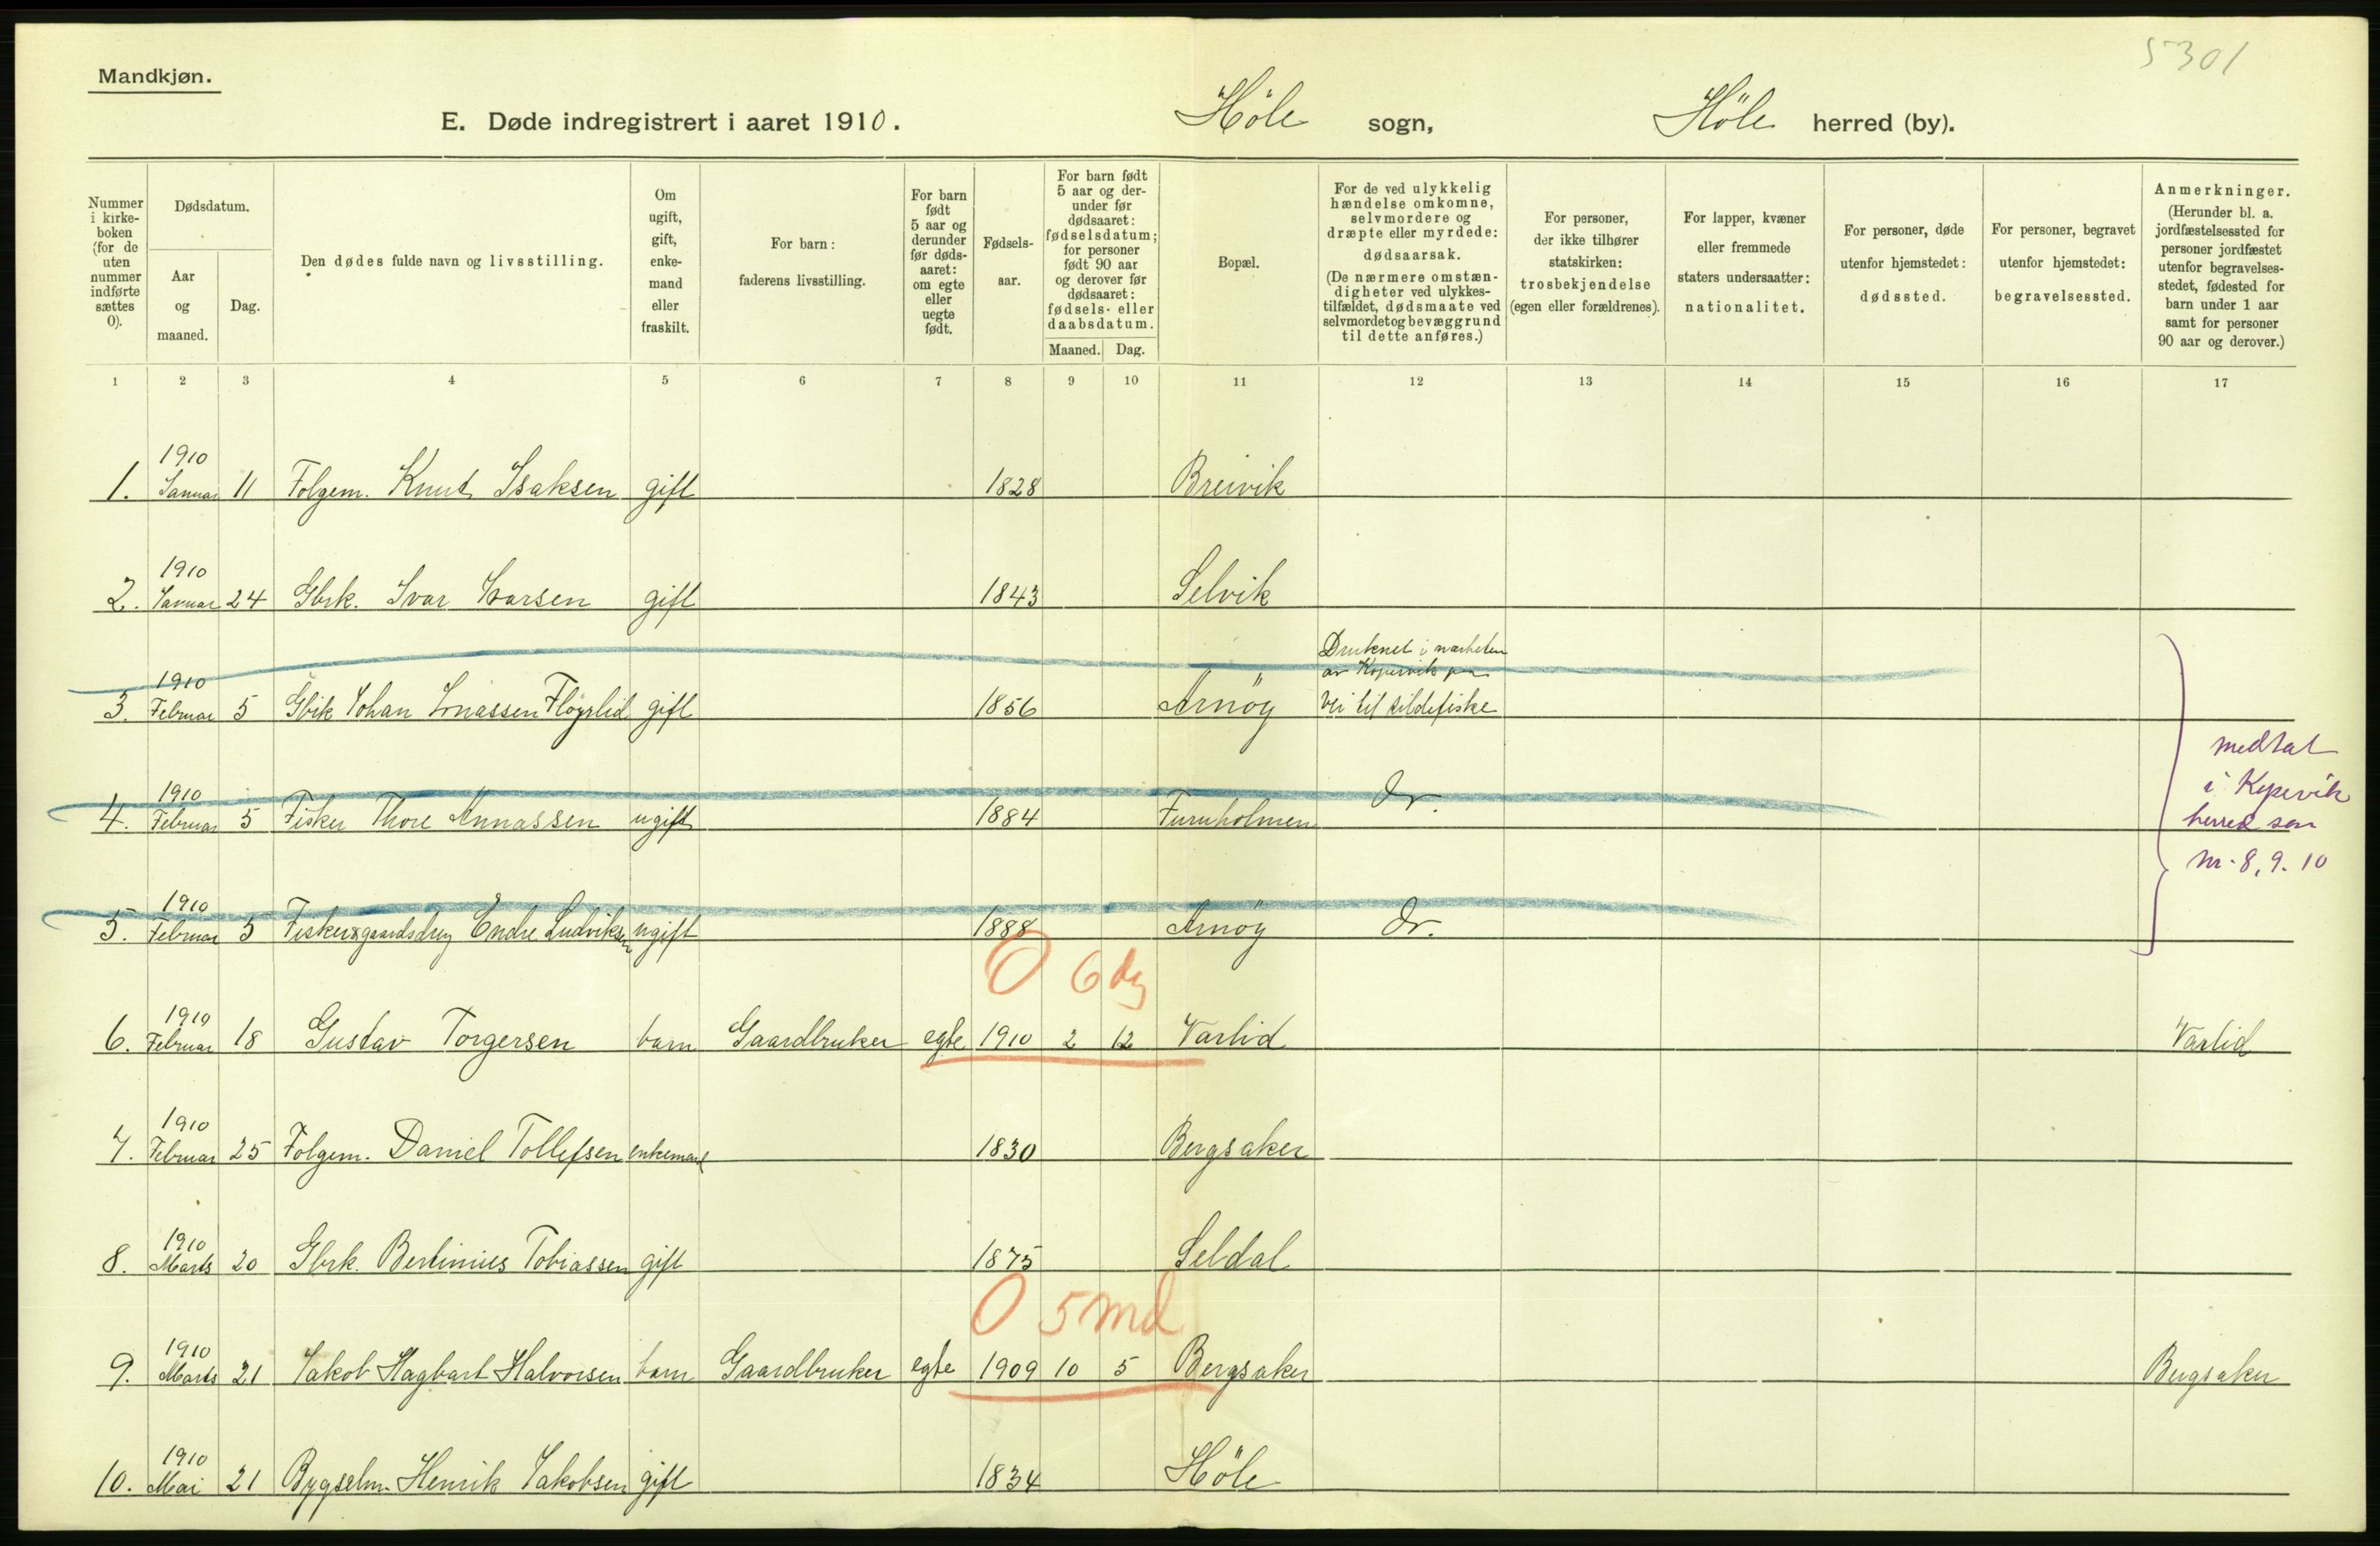 5301
Mandkjøn.
E. Døde indregistrert i aaret 1910. Höle sogn, Höle herred (by).
Nummer i kirkeboken (for de uten nummer indførte sættes 0).
Dødsdatum.
Aar og maaned.
Dag.
Den dødes fulde navn og livsstilling.
Om ugift, gift, enkemand eller fraskilt.
For barn: faderens livsstilling.
For barn født 5 aar og derunder før dødsaaret: om egte eller uegte født.
Fødselsaar.
For barn født 5 aar og derunder før dødsaaret: fødselsdatum; for personer født 90 aar og derover før dødsaaret: fødsels- eller daabsdatum.
Maaned. Dag.
Bopæl.
For de ved ulykkelig hændelse omkomne, selvmordere og dræpte eller myrdede: dødsaarsak. (De nærmere omstændigheter ved ulykkestilfældet, dødsmaate ved selvmordet og bevæggrund til dette anføres.)
For personer, der ikke tilhører statskirken: trosbekjendelse (egen eller forældrenes).
For lapper, kvæner eller fremmede staters undersaatter: nationalitet.
For personer, døde utenfor hjemstedet: dødssted.
For personer, begravet utenfor hjemstedet: begravelsessted.
Anmerkninger. (Herunder bl. a. jordfæstelsessted for personer jordfæstet utenfor begravelsesstedet, fødested for barn under 1 aar samt for personer 90 aar og derover.)
1 2 3 4 5 6 7 8 9 10 11 12 13 14 15 16 17
1910
1. Januar 11 Folgem. Knut Isaksen gift 1828 Breivik
1910
2. Januar 24 Gbrk. Ivar Ivarsen gift 1843 Selvik
Druknet i nærheten
1910 av Kopervik paa
3. Februar 5 Gbrk Johan Jonassen Fløyrlid gift 1856 Arnöy Vei til sildefiske
medtat
i Kopervik
herred som
Nr. 8, 9. 10
1910
4. Februar 5 Fisker Thore Annassen ugift 1884 Furuholmen Do.
1910
5. Februar 5 Fisker & gaardsdreng Endre Ludviksen ugift 1888 Arnöy Do.
0 6 dg
1910
6. Februar 18 Gustav Torgersen barn Gaardbruker egte 1910 2 12 Varlid Varlid
1910
7. Februar 25 Folgem. Daniel Tollefsen enkemand 1830 Bergsaker
1910
8. Marts 20 Gbrk. Bertinius Tobiassen gift 1875 Seldal
0 5 md
1910
9. Marts 21 Jakob Hagbart Halvorsen barn Gaardbruker egte 1909 10 5 Bergsaker Bergsaker
1910
10. Mai 21 Bygselm. Henrik Jakobsen gift 1834 Höle